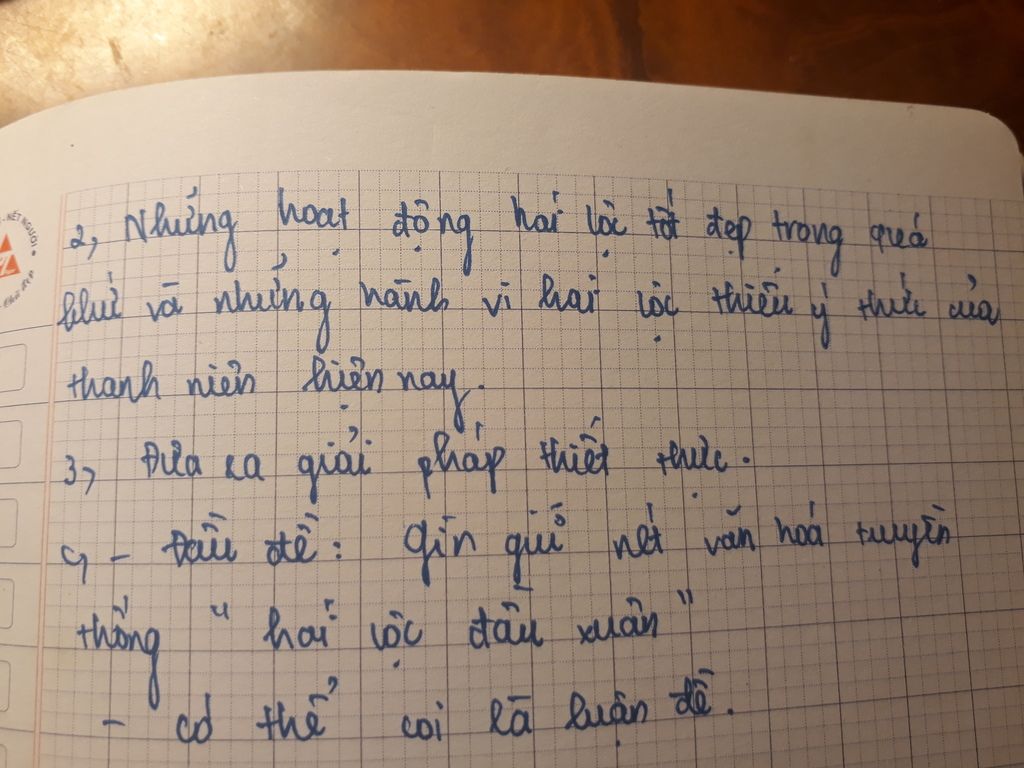 2, Những hoạt động hái lộc tốt đẹp trong quá
khứ và những hành vi hái lộc thiếu ý thức của
thanh niên hiện nay.
3, Đưa ra giải pháp thiết thực.
4, - Đầu đề: Gìn giữ nét văn hoá truyền
thống " hái lộc đầu xuân"
- có thể coi là luận đề.